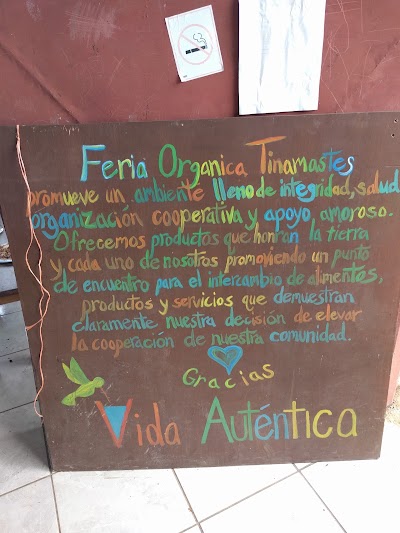 Feria Organica Tinamastes
promueve un ambiente lleno de integridad, salud
organización cooperativa y apoyo amoroso.
Ofrecemos productos que honran la tierra
y cada uno de nosotros promoviendo un punto
de encuentro para el intercambio de alimentos,
productos y servicios que demuestran
claramente nuestra decisión de elevar
la cooperación de nuestra comunidad.
Gracias
Vida Auténtica